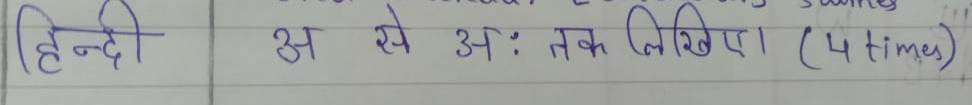 हिन्दी अ से अः तक लिखिए। (4 times)